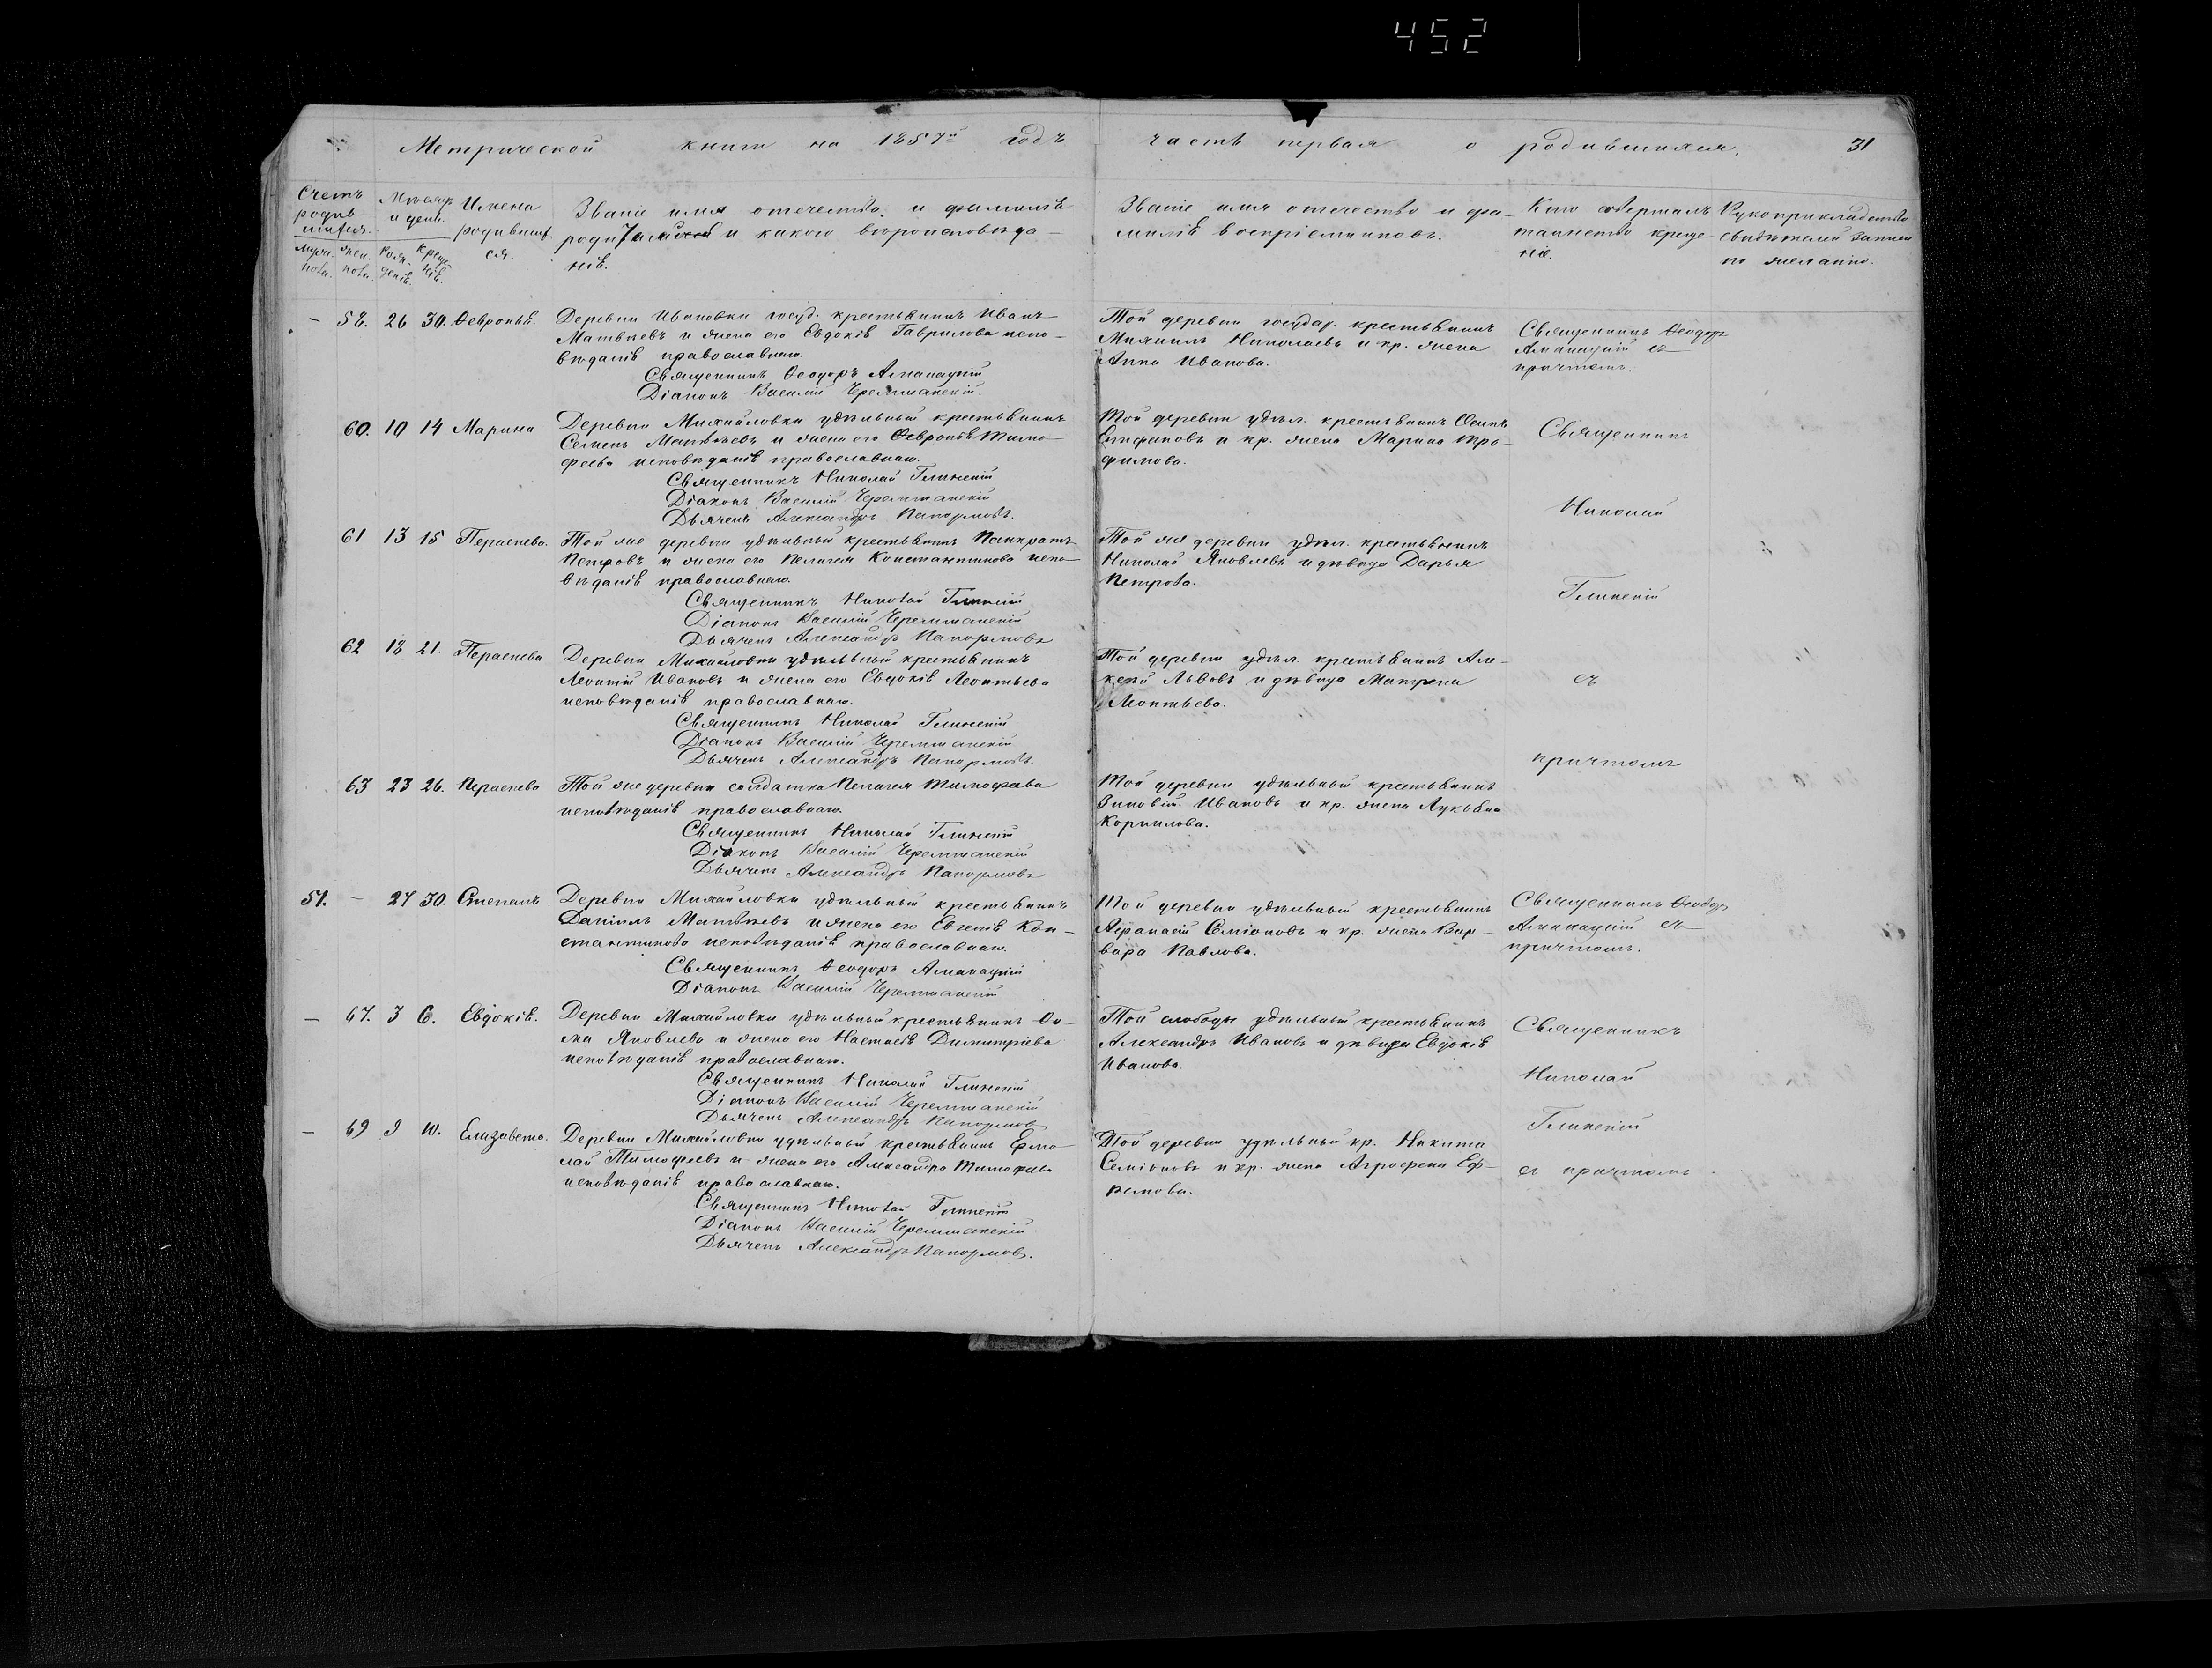 452
Метрической книги на 1857й годъ часть первая о родившихся. 31
Счетъ родившихся.
Мужеска. женска.
Мѣсяцъ и день.
Рожденія. Крещенія.
Имена родившихся.
Званіе имя отечество, и фамилія
родителей и какого вѣроисповѣда-
нія.
Званіе имя отечество и фа-
милія воспріемниковъ.
Кто совершалъ
таинство креще-
нія.
Рукоприкладство
свидѣтелей записи
по желанію.
– 58. 26 30. Ѳевронія. Деревни Ивановки госуд. крестьянинъ Иванъ
Матвѣевъ и жена его Евдокія Гаврилова испо-
вѣданія православнаго.
Священникъ Ѳеодоръ Аманацкій
Діаконъ Василій Черемшанскій.
Той деревни государ. крестьянинъ
Михаилъ Николаевъ и кр. жена
Анна Иванова.
Священникъ Ѳеодоръ
Аманацкій съ
причтомъ.
60. 10 14 Марина Деревни Михайловки удѣльный крестьянинъ
Семенъ Матвѣевъ и жена его Ѳевронія Тимо-
феева исповѣданія православнаго.
Священникъ Николай Глинскій
Діаконъ Василій Черемшанскій
Дьячекъ Александръ Папормовъ.
Той деревни удѣл. крестьянинъ Осипъ
Епифановъ и кр. жена Марина Тро-
фимова.
Священникъ
Николай
61 13 15 Параскева. Той же деревни удѣльный крестьянинъ Панкратъ
Петровъ и жена его Пелагея Константинова испо-
вѣданія православнаго.
Священникъ Николай Глинскій
Діаконъ Василій Черемшанскій
Дьячекъ Александръ Папормовъ
Той же деревни удѣл. крестьянинъ
Николай Яковлевъ и дѣвица Дарья
Петрова.
Глинскій
62 18 21. Параскева Деревни Михайловки удѣльный крестьянинъ
Леонтій Ивановъ и жена его Евдокія Леонтьева
исповѣданія православнаго.
Священникъ Николай Глинскій
Діаконъ Василій Черемшанскій
Дьячекъ Александръ Папормовъ.
Той деревни удѣл. крестьянинъ Але-
ксѣй Львовъ и дѣвица Матрена
Леонтьева.
съ
причтомъ
63 23 26. Параскева Той же деревни солдатка Пелагея Тимофеева
исповѣданія православнаго.
Священникъ Николай Глинскій
Діаконъ Василій Черемшанскій
Дьячекъ Александръ Папормовъ
Той деревни удѣльный крестьянинъ
Зиновій Ивановъ и кр. жена Лукьяна
Корнилова.
51. – 27 30. Степанъ Деревни Михайловки удѣльный крестьянинъ
Даніилъ Матвѣевъ и жена его Евгенія Кон-
стантинова исповѣданія православнаго.
Священникъ Ѳеодоръ Аманацкій
Діаконъ Василій Черемшанскій
Той деревни удѣльный крестьянинъ
Аѳанасій Семіоновъ и кр. жена Вар-
вара Павлова.
Священникъ Ѳеодоръ
Аманацкій съ
причтомъ.
– 67. 3 6. Евдокія. Деревни Михайловки удѣльный крестьянинъ Ѳо-
ма Яковлевъ и жена его Настасія Димитріева
исповѣданія православнаго.
Священникъ Николай Глинскій
Діаконъ Василій Черемшанскій
Дьячекъ Александръ Папормовъ
Той слободы удѣльный крестьянинъ
Александръ Ивановъ и дѣвица Евдокія
Иванова.
Священникъ
Николай
– 69 9 10. Елизавета. Деревни Михайловки удѣльный крестьянинъ Ермо-
лай Тимофеевъ и жена его Александра Тимофеева
исповѣданія православнаго.
Священникъ Николай Глинскій
Діаконъ Василій Черемшанскій
Дьячекъ Александръ Папормовъ.
Той деревни удѣльный кр. Никита
Семіоновъ и кр. жена Агрофена Еф-
ремова.
Глинскій
съ причтомъ.